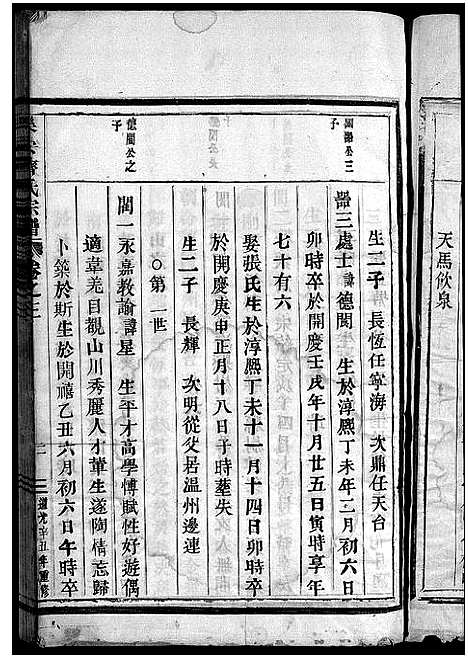 天馬飲泉
生二子 長恆任寧海 次鼎任天台
國器公三子
器三處士諱德閏 生於淳熙丁未年二月初六日
卯時卒於開慶壬戌年十月廿五日寅時享年
七十有六
娶張氏生於淳熙丁未十一月十四日卯時卒
於開慶庚申正月十八日子時墓失
生二子 長輝 次明從父居温州邊連
○第一世
德閏公之子
閏一永嘉教諭諱星 生平才高學博賦性好遊偶
適韋羌目觀山川秀麗人才葦生遂陶情忘歸
卜築於斯生於開禧乙丑六月初六日午時卒
氏宗譜 卷之
二
道光辛丑年重修